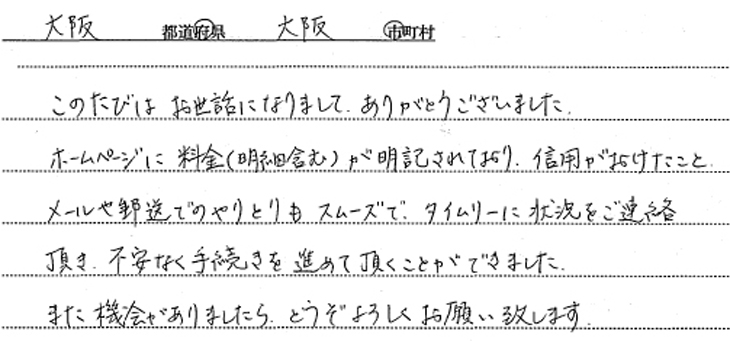 大阪 都道府県 大阪 市町村
このたびは お世話になりまして、ありがとうございました。
ホームページに 料金(明細含む)が明記されており、信用がおけたこと、
メールや郵送でのやりとりも スムーズで、タイムリーに 状況をご連絡
頂き、不安なく手続きを進めて頂くことができました。
また機会がありましたら、どうぞよろしくお願い致します。